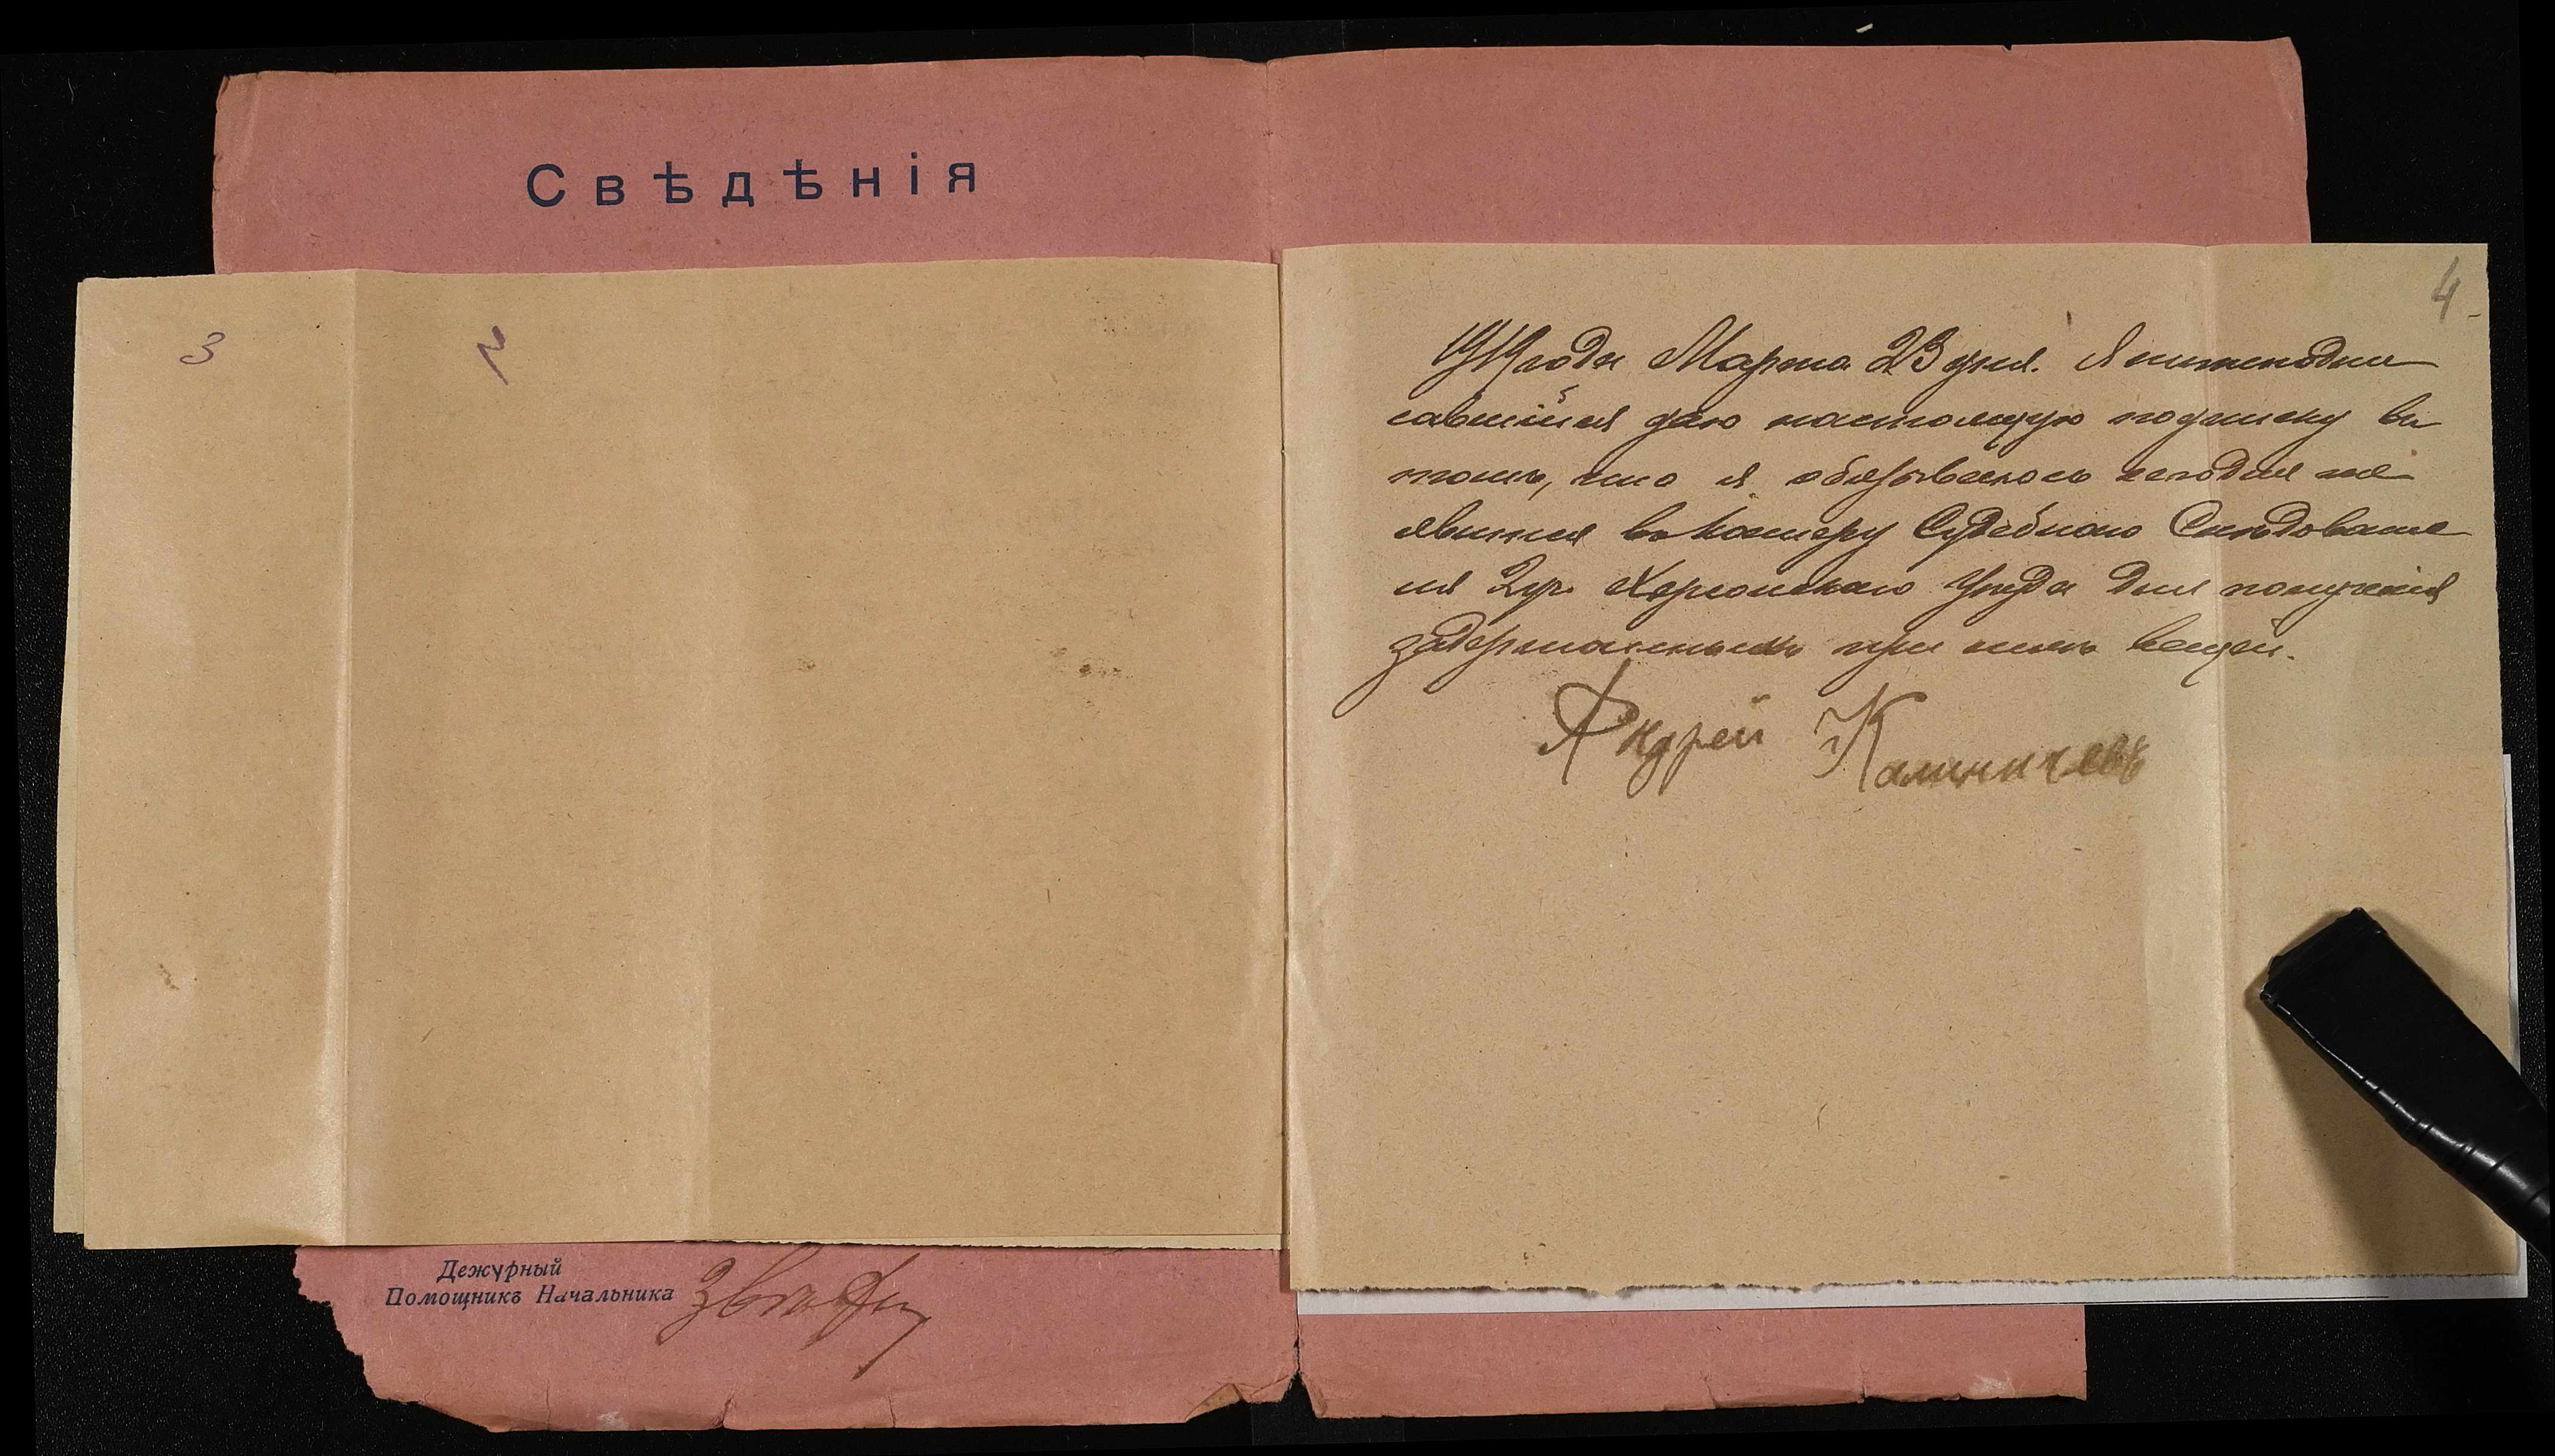 Свѣдѣнія
3
4
1917 года Марта 23 дня. Я нижеподпи
савшійся даю настоящую подписку въ
томъ, что я обязываюсь сегодня же
явиться въ камеру Судебнаго Слѣдовате
ля 2 уч. Херсонскаго Уѣзда для полученія
задержанныхъ при мнѣ вещей.
Андрей Калиничевъ
Дежурный
Помощникъ Начальника